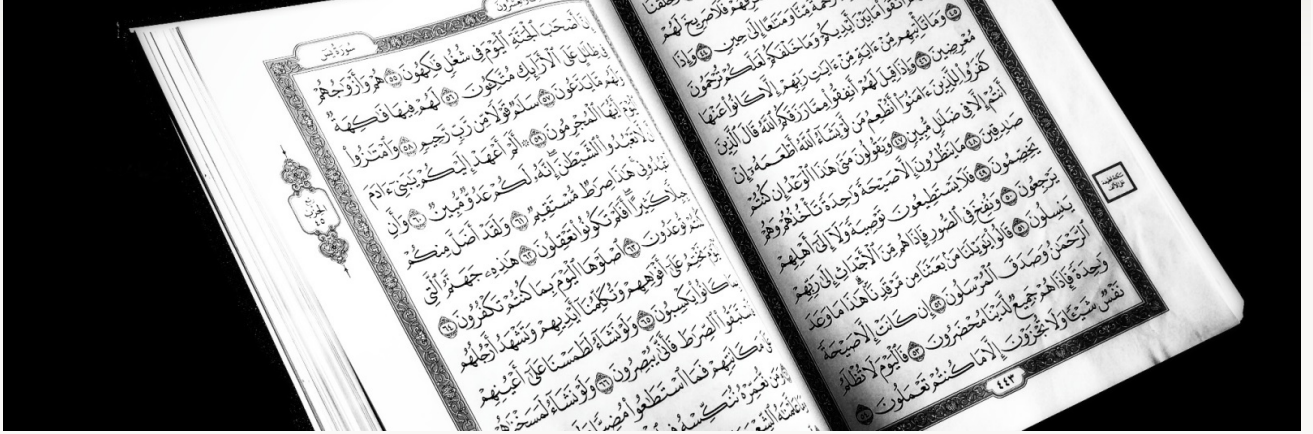 وَخَلَقْنَا
فَلَا صَرِيخَ لَهُمْ
رَحْمَةً مِّنَّا وَمَتَٰعًا إِلَىٰ حِينٍ ٤٤ وَإِذَا
ٱتَّقُوا۟ مَا بَيْنَ أَيْدِيكُمْ وَمَا خَلْفَكُمْ لَعَلَّكُمْ تُرْحَمُونَ
٤٥ وَمَا تَأْتِيهِم مِّنْ ءَايَةٍ مِّنْ ءَايَٰتِ رَبِّهِمْ إِلَّا كَانُوا۟ عَنْهَا
مُعْرِضِينَ ٤٦ وَإِذَا قِيلَ لَهُمْ أَنفِقُوا۟ مِمَّا رَزَقَكُمُ ٱللَّهُ قَالَ ٱلَّذِينَ
كَفَرُوا۟ لِلَّذِينَ ءَامَنُوٓا۟ أَنُطْعِمُ مَن لَّوْ يَشَآءُ ٱللَّهُ أَطْعَمَهُۥٓ إِنْ
أَنتُمْ إِلَّا فِى ضَلَٰلٍ مُّبِينٍ ٤٧ وَيَقُولُونَ مَتَىٰ هَٰذَا ٱلْوَعْدُ إِن كُنتُمْ
صَٰدِقِينَ ٤٨ مَا يَنظُرُونَ إِلَّا صَيْحَةً وَٰحِدَةً تَأْخُذُهُمْ وَهُمْ
يَخِصِّمُونَ ٤٩ فَلَا يَسْتَطِيعُونَ تَوْصِيَةً وَلَآ إِلَىٰٓ أَهْلِهِمْ
يَرْجِعُونَ ٥٠ وَنُفِخَ فِى ٱلصُّورِ فَإِذَا هُم مِّنَ ٱلْأَجْدَاثِ إِلَىٰ رَبِّهِمْ
يَنسِلُونَ ٥١ قَالُوا۟ يَٰوَيْلَنَا مَنۢ بَعَثَنَا مِن مَّرْقَدِنَا ۜ هَٰذَا مَا وَعَدَ
ٱلرَّحْمَٰنُ وَصَدَقَ ٱلْمُرْسَلُونَ ٥٢ إِن كَانَتْ إِلَّا صَيْحَةً
وَٰحِدَةً فَإِذَا هُمْ جَمِيعٌ لَّدَيْنَا مُحْضَرُونَ ٥٣ فَٱلْيَوْمَ لَا تُظْلَمُ
نَفْسٌ شَيْـًٔا وَلَا تُجْزَوْنَ إِلَّا مَا كُنتُمْ تَعْمَلُونَ ٥٤
٤٤٣
سُورَةُ يسٓ
إِنَّ أَصْحَٰبَ ٱلْجَنَّةِ ٱلْيَوْمَ فِى شُغُلٍ فَٰكِهُونَ ٥٥ هُمْ وَأَزْوَٰجُهُمْ
فِى ظِلَٰلٍ عَلَى ٱلْأَرَآئِكِ مُتَّكِـُٔونَ ٥٦ لَهُمْ فِيهَا فَٰكِهَةٌ
وَلَهُم مَّا يَدَّعُونَ ٥٧ سَلَٰمٌ قَوْلًا مِّن رَّبٍّ رَّحِيمٍ ٥٨ وَٱمْتَٰزُوا۟
ٱلْيَوْمَ أَيُّهَا ٱلْمُجْرِمُونَ ٥٩ ۞ أَلَمْ أَعْهَدْ إِلَيْكُمْ يَٰبَنِىٓ ءَادَمَ
لَّا تَعْبُدُوا۟ ٱلشَّيْطَٰنَ ۖ إِنَّهُۥ لَكُمْ عَدُوٌّ مُّبِينٌ ٦٠ وَأَنِ
ٱعْبُدُونِى ۚ هَٰذَا صِرَٰطٌ مُّسْتَقِيمٌ ٦١ وَلَقَدْ أَضَلَّ مِنكُمْ
جِبِلًّا كَثِيرًا ۖ أَفَلَمْ تَكُونُوا۟ تَعْقِلُونَ ٦٢ هَٰذِهِۦ جَهَنَّمُ ٱلَّتِى
كُنتُمْ تُوعَدُونَ ٦٣ ٱصْلَوْهَا ٱلْيَوْمَ بِمَا كُنتُمْ تَكْفُرُونَ ٦٤
ٱلْيَوْمَ نَخْتِمُ عَلَىٰٓ أَفْوَٰهِهِمْ وَتُكَلِّمُنَآ أَيْدِيهِمْ وَتَشْهَدُ أَرْجُلُهُم
بِمَا كَانُوا۟ يَكْسِبُونَ ٦٥ وَلَوْ نَشَآءُ لَطَمَسْنَا عَلَىٰٓ أَعْيُنِهِمْ
فَٱسْتَبَقُوا۟ ٱلصِّرَٰطَ فَأَنَّىٰ يُبْصِرُونَ ٦٦ وَلَوْ نَشَآءُ لَمَسَخْنَٰهُمْ
عَلَىٰ مَكَانَتِهِمْ فَمَا ٱسْتَطَٰعُوا۟ مُضِيًّا
وَمَن نُّعَمِّرْهُ نُنَكِّسْهُ فِى
عَلَّمْنَٰهُ ٱلشِّعْرَ
ٱلْحِزْبُ
٤٥